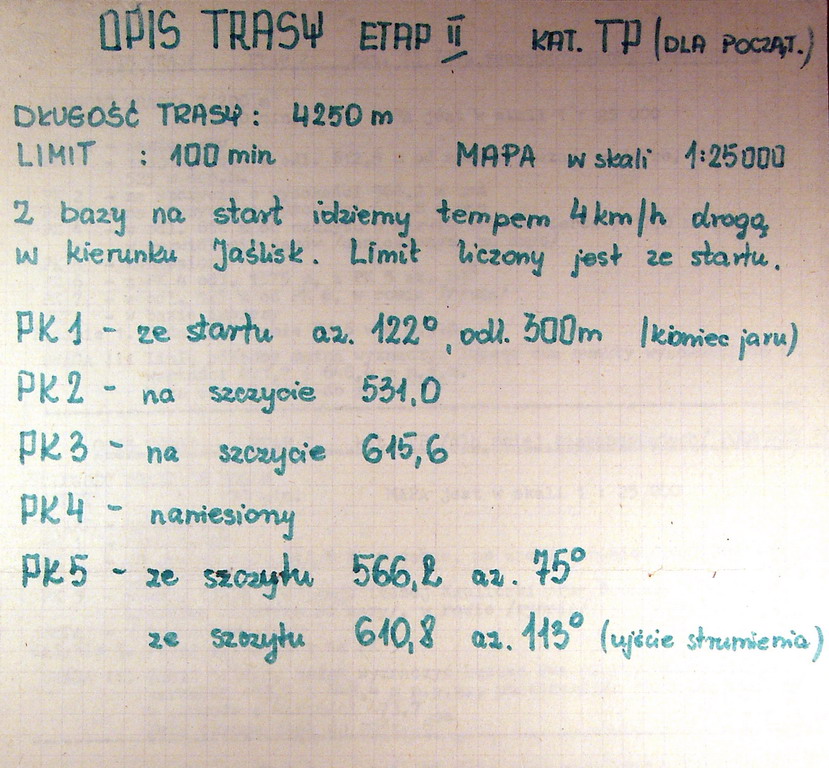 OPIS TRASY ETAP II KAT. TP (DLA POCZĄT.)
DŁUGOŚĆ TRASY: 4250 m
LIMIT : 100 min MAPA w skali 1:25000
Z bazy na start idziemy tempem 4 km/h drogą
w kierunku Jaślisk. Limit liczony jest ze startu.
PK 1 - ze startu az. 122°, odl. 300m /koniec jaru)
PK 2 - na szczycie 531,0
PK 3 - na szczycie 615,6
PK 4 - naniesiony
PK 5 - ze szczytu 566,2 az. 75°
ze szczytu 610,8 az. 113° (ujście strumienia)